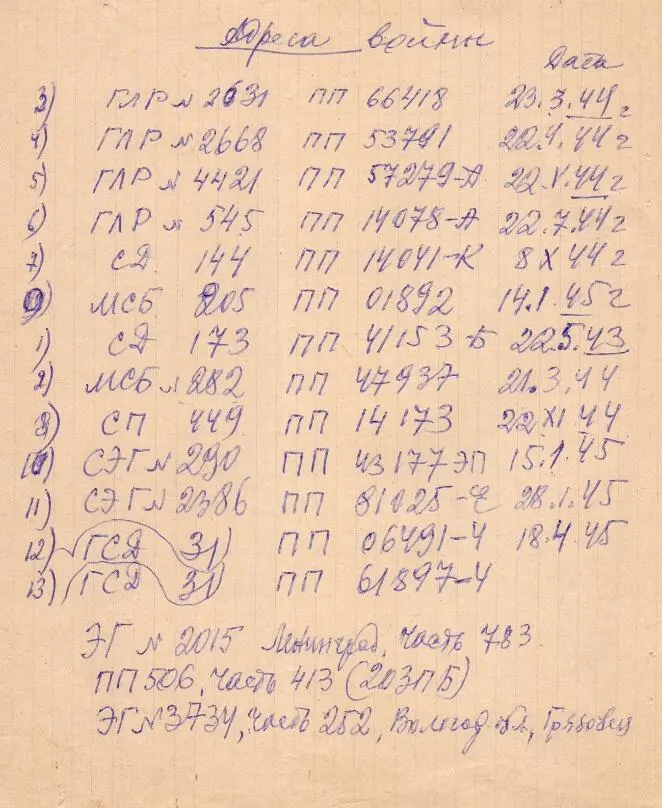 Адреса войны
Дата
3) ГЛР № 2631 ПП 66418 23.3.44 г
4) ГЛР № 2668 ПП 53791 22.4.44 г
5) ГЛР № 4421 ПП 57279-А 22.V.44 г
6) ГЛР № 545 ПП 14078-А 22.7.44 г
7) СД 144 ПП 14041-К 8 X 44 г
9) МСБ 205 ПП 01892 14.1.45 г
1) СД 173 ПП 41153-Б 22.5.43
2) МСБ № 282 ПП 47937 21.3.44
8) СП 449 ПП 14173 22 XI 44
10) СЭГ № 290 ПП 43177 ЭП 15.1.45
11) СЭГ № 2386 ПП 81025- 28.1.45
12) ГСД 31) ПП 06491-Ч 18.4.45
13) ГСД 31) ПП 61897-Ч
ЭГ № 2015 Ленинград, часть 783
ПП 506, часть 413 (203ПБ)
ЭГ № 3734, часть 252, Вологод. обл., Грязовец